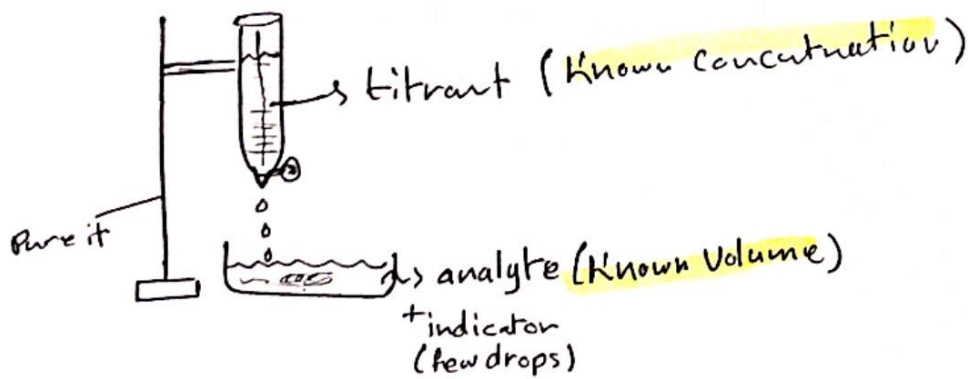 titrant (Known Concatnation)
Pure it
analyte (Known Volume)
+indicator
(few drops)